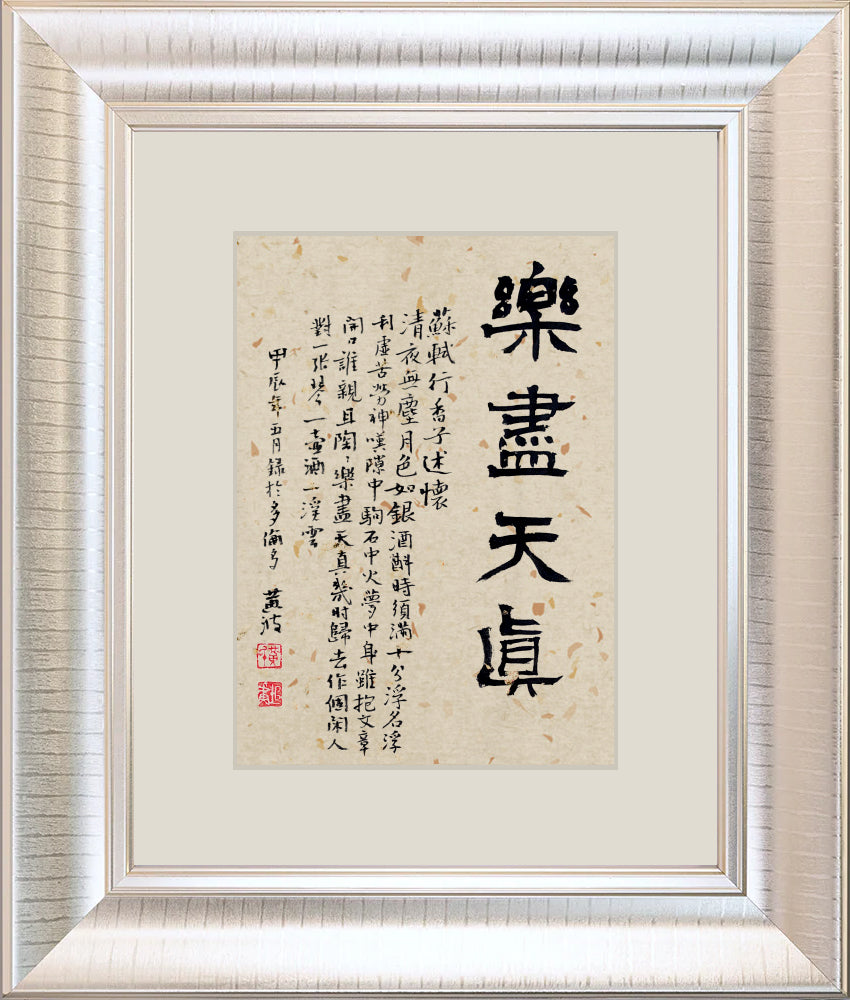 樂盡天眞
蘇軾行香子述懷
清夜無塵月色如銀酒斟時須滿十分浮名浮
利虛苦勞神嘆隙中駒石中火夢中身雖抱文章
開口誰親且陶、樂盡天真幾時歸去作個閑人
對一張琴一壺酒一溪雲
甲辰年五月録於多倫多 黃波